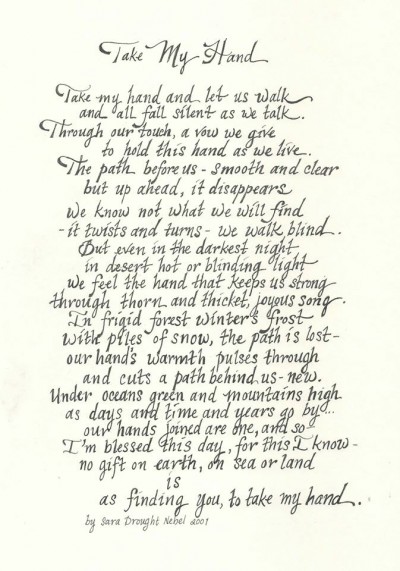 Take My Hand
Take my hand and let us walk
and all fall silent as we talk.
Through our touch, a vow we give
to hold this hand as we live.
The path before us - smooth and clear
but up ahead, it disappears
We know not what we will find
- it twists and turns - we walk blind.
But even in the darkest night
in desert hot or blinding light
we feel the hand that keeps us strong
through thorn and thicket, joyous song.
In frigid forest winter's frost
with piles of snow, the path is lost -
our hand's warmth pulses through
and cuts a path behind us - new.
Under oceans green and mountains high
as days and time and years go by...
our hands joined are one, and so
I'm blessed this day, for this I know -
no gift on earth, on sea or land
is
as finding you, to take my hand.
by Sara Drought Nebel 2001